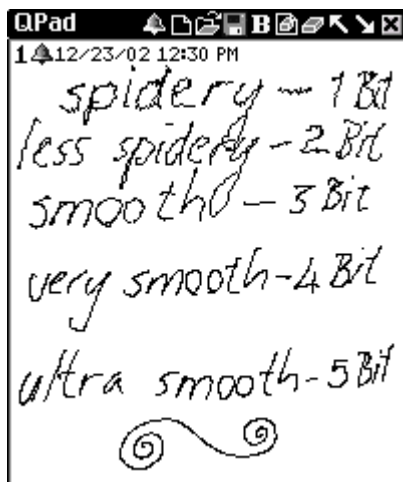 QPad B
1 12/23/02 12:30 PM
spidery - 1 Bit
less spidery - 2 Bit
smooth - 3 Bit
very smooth - 4 Bit
ultra smooth - 5 Bit